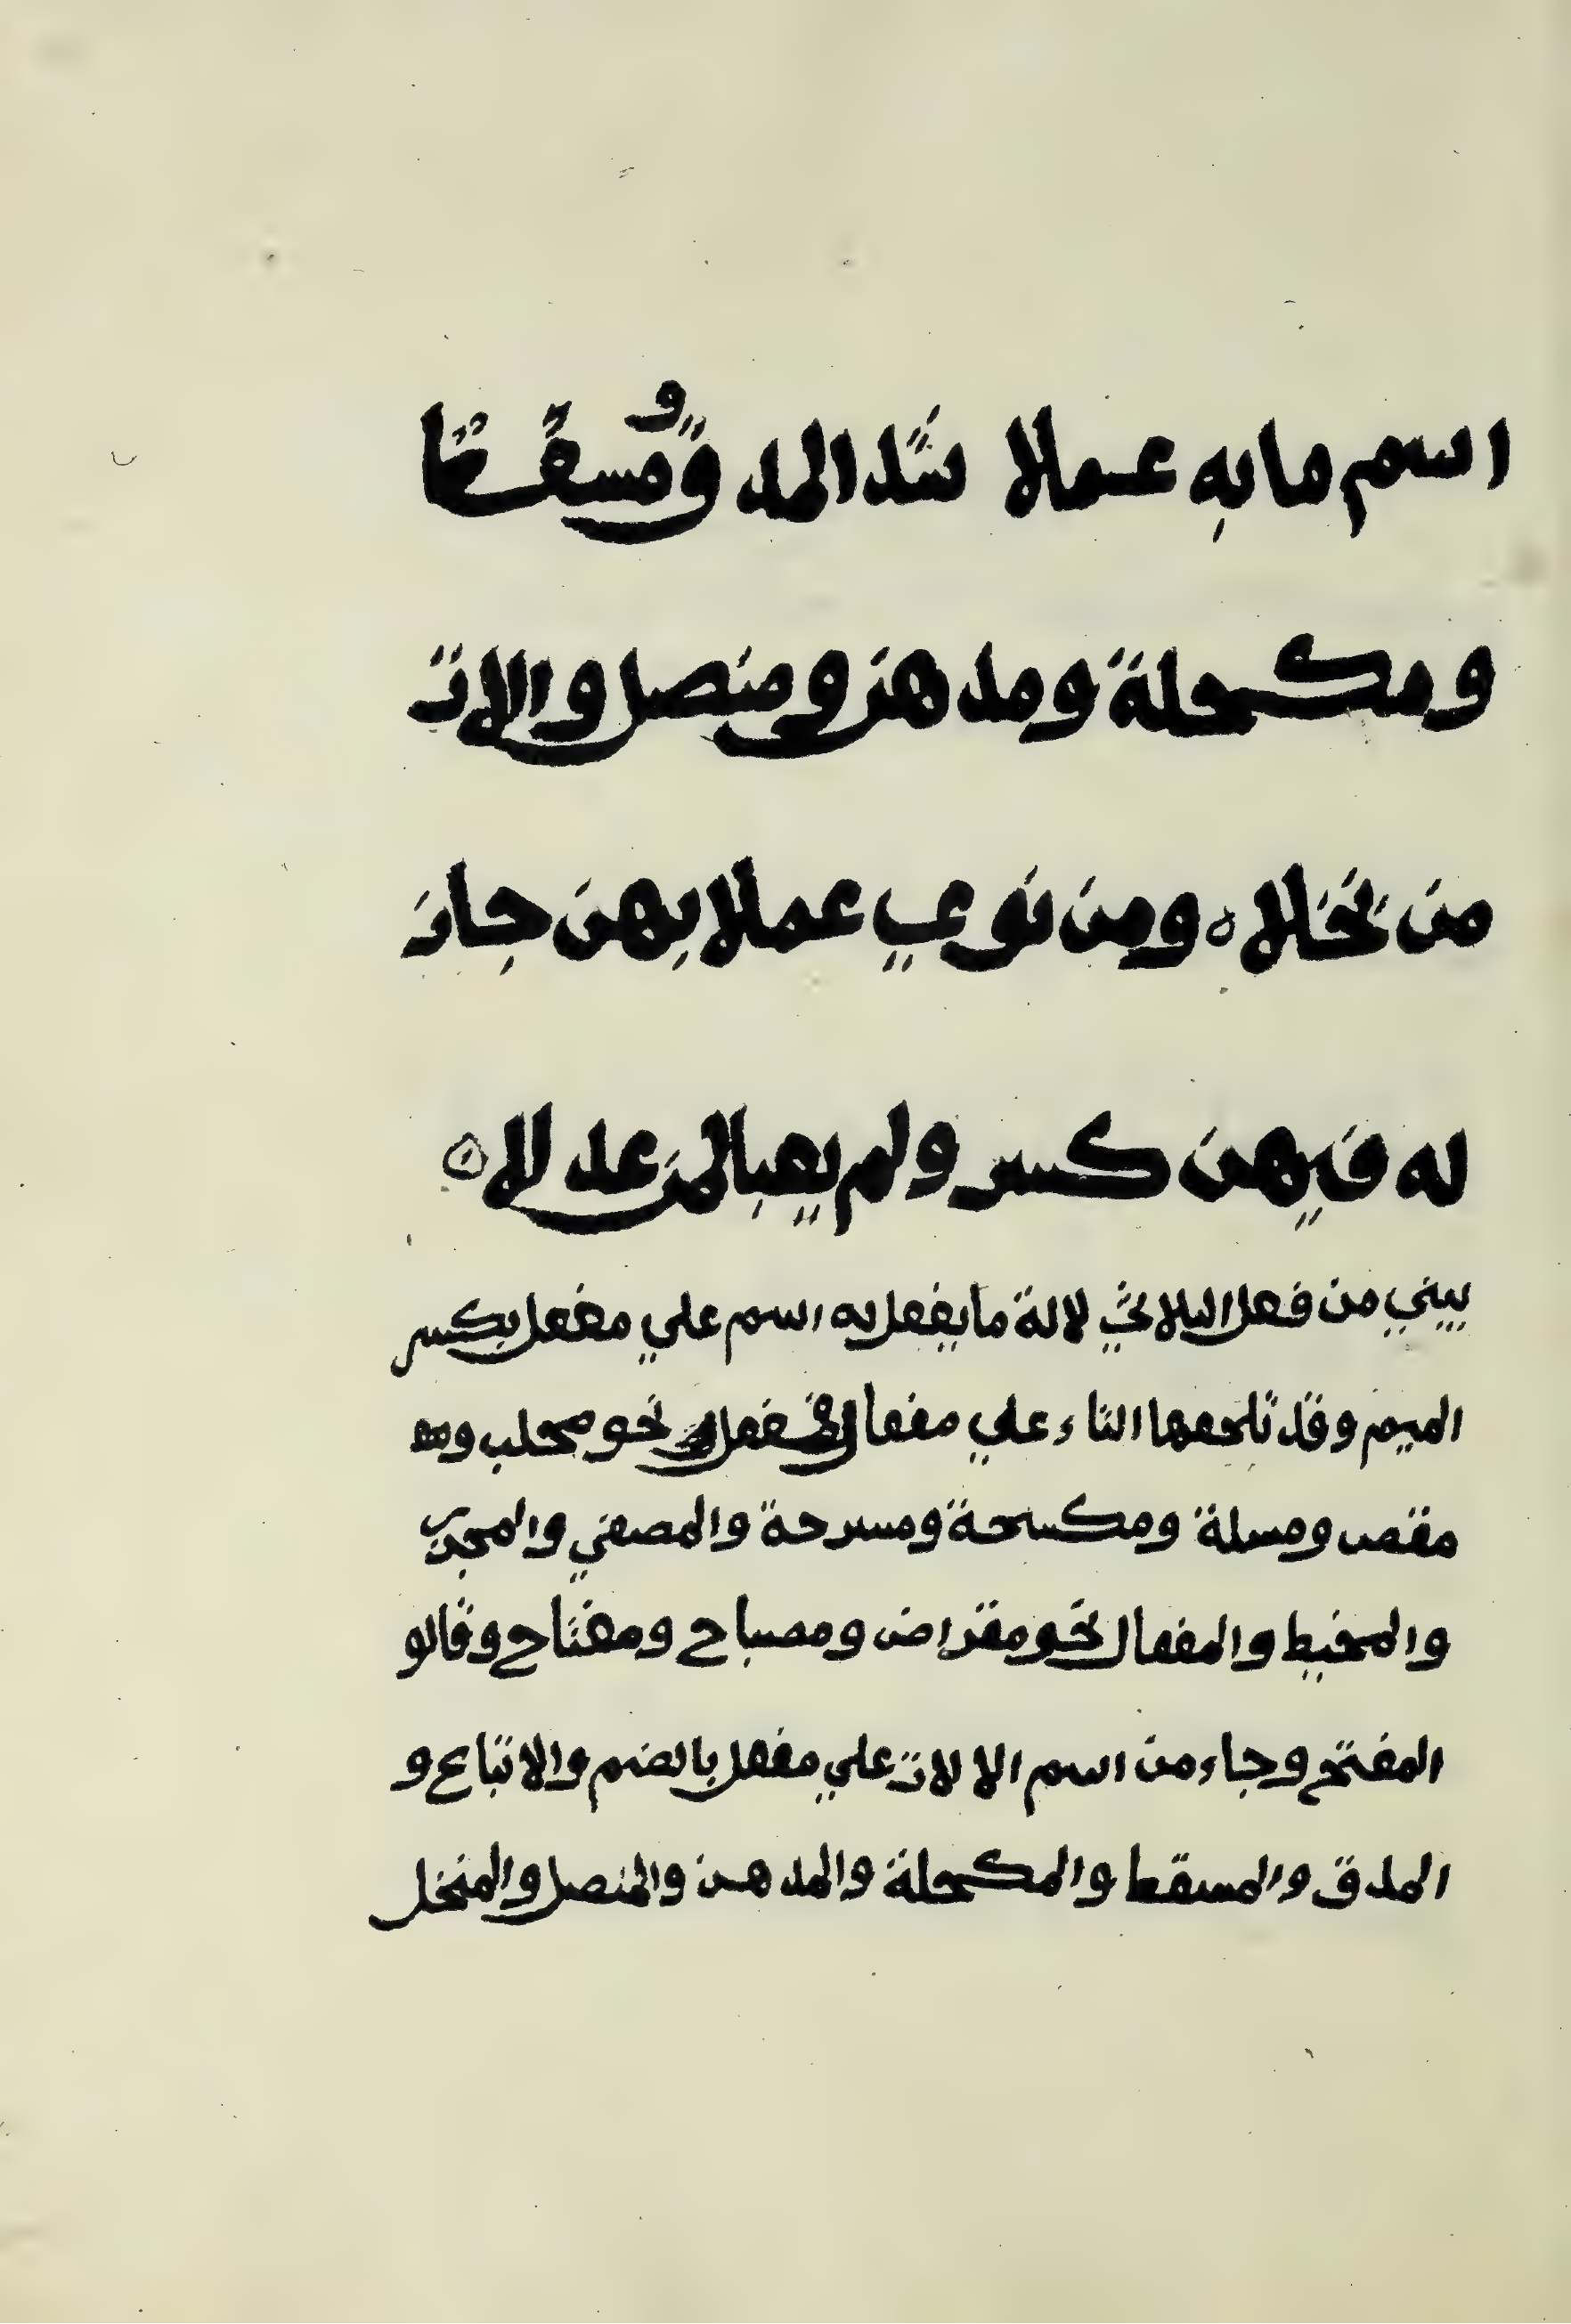 اسم ما به عملا شذ المدق ومسقطا
ومكحلة ومدهن ومنصل والات
من نخلا ه ومن نوي عملا بهن جاز
له فيهن كسر ولم يعبا لمن عدلا ه
يبني من فعل الثلاثي لالة ما يفعل به اسم علي مفعل بكسر
الميم وقد تلحقها التاء علي مفعال نحو محلب
مقص ومسلة ومكسحة ومسرحة والمصفي والمجرب
والمخيط والمفعال نحو مقراض ومصباح ومفتاح وقالو
المفتح وجاء من اسم الالات علي مفعل بالضم والاتباع و
المدق والمسقط والمكحلة والمدهن والمنصل والمنخل